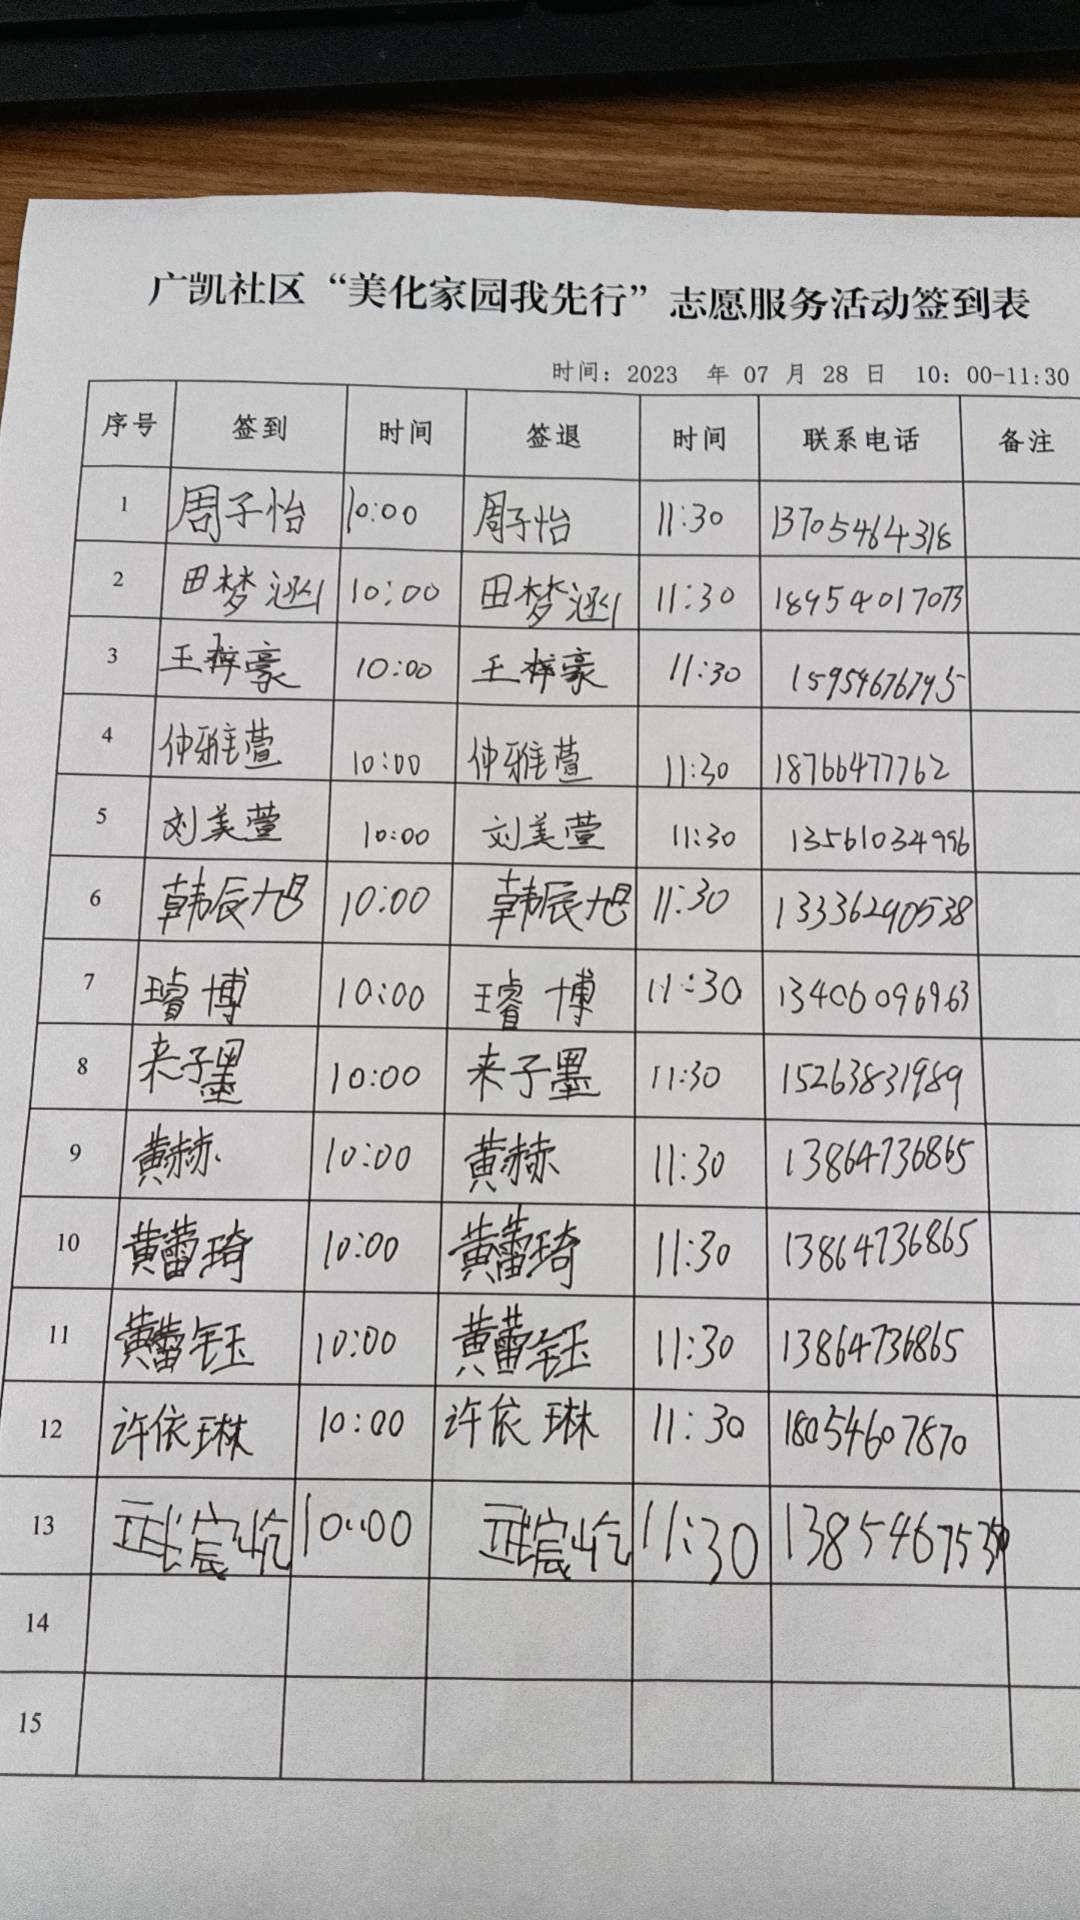 广凯社区“美化家园我先行”志愿服务活动签到表
时间：2023 年 07 月 28 日 10：00-11:30
序号 签到 时间 签退 时间 联系电话 备注
1 周子怡 10:00 周子怡 11:30 13705464318
2 田梦涵 10:00 田梦涵 11:30 18954017073
3 王梓豪 10:00 王梓豪 11:30 15954676795
4 仲雅萱 10:00 仲雅萱 11:30 18766477762
5 刘美萱 10:00 刘美萱 11:30 13561034996
6 韩辰旭 10:00 韩辰旭 11:30 13336290538
7 王睿博 10:00 王睿博 11:30 13406096963
8 来子墨 10:00 来子墨 11:30 15263831989
9 黄赫 10:00 黄赫 11:30 13864736865
10 黄蕾琦 10:00 黄蕾琦 11:30 13864736865
11 黄蕾钰 10:00 黄蕾钰 11:30 13864736865
12 许依琳 10:00 许依琳 11:30 18054607870
13 10:00 11:30
14
15